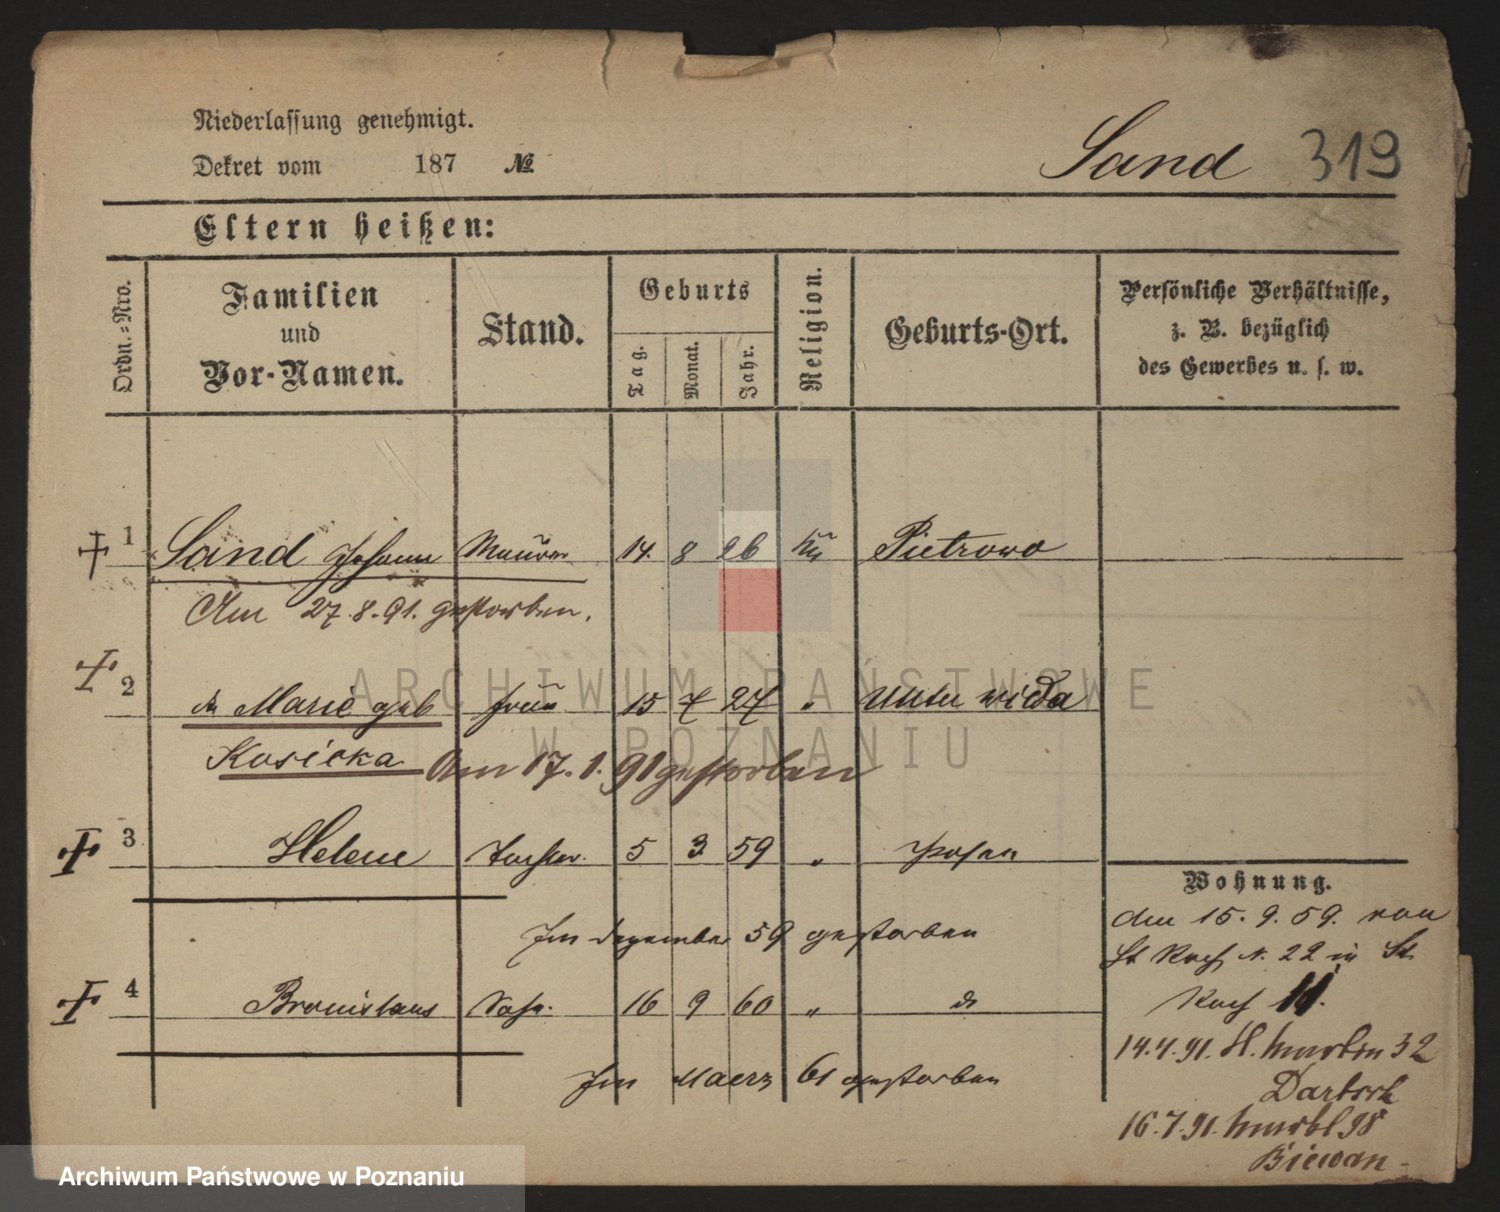 Niederlassung genehmigt.
Dekret vom 187 №
Sand 319
Eltern heißen:
Ordn.-Nro.
Familien
und
Vor-Namen.
Stand.
Geburts
Tag.
Monat.
Jahr.
Religion.
Geburts-Ort.
Persönliche Verhältnisse,
z. B. bezüglich
des Gewerbes u. s. w.
1 Sand Johann Maurer 14. 8 26 Pietrowo
Am 27.8.91. gestorben.
2 Marie geb Frau 15 7 27 " Unter wilda
Kosicka Am 17.1.91 gestorben
3 Helene Tochter. 5 3 59 " Posen
Im dezember 59 gestorben
4 Bronislaus Sohn. 16 9 60 "
Im Maerz 61 gestorben
Wohnung.
Am 15.9.59. von
St Roch N. 22 in St.
Roch 11.
14.4.91. St. Martin 32
Bartsch
16.7.91. 98
ARCHIWUM PAŃSTWOWE
W POZNANIU
Archiwum Państwowe w Poznaniu